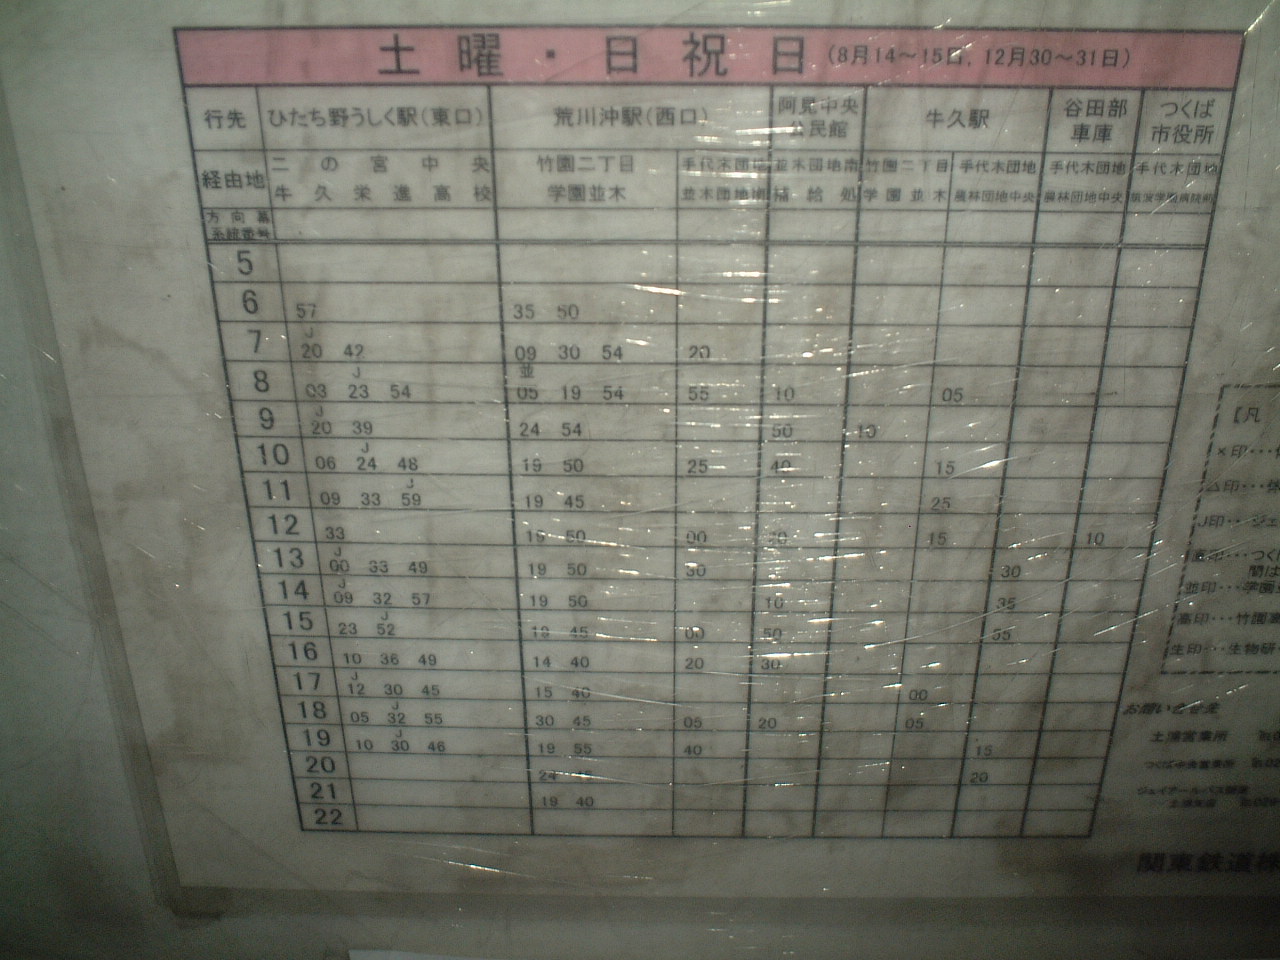 土曜・日祝日(8月14〜15日, 12月30〜31日)
行先 ひたち野うしく駅(東口) 荒川沖駅(西口) 阿見中央公民館 牛久駅 谷田部車庫 つくば市役所
経由地 二の宮中央 竹園二丁目 手代木団地 並木団地南 竹園二丁目 手代木団地 手代木団地 手代木団地
牛久栄進高校 学園並木 並木団地南 補給処 学園並木 農林団地中央 農林団地中央
方向幕
系統番号
5
6 57 35 50
7 J20 42 09 30 54 20
8 03 J23 54 並05 19 54 55 10 05
9 J20 39 24 54 50 10
10 06 J24 48 19 50 25 40 15
11 09 33 J59 19 45 25
12 33 50 00 15 10
13 J00 33 49 19 50 30 30
14 J09 32 57 19 50 10 35
15 23 J52 45 00 50 55
16 10 36 49 14 40 20 30
17 J12 30 45 15 40 00
18 05 J32 55 30 45 05 20 05
19 10 J30 46 19 55 40 15
20 24 20
21 19 40
22
【凡
×印・・・
△印・・・休
J印・・・ジェ
・・・つく
間は
並印・・・学園
高印・・・竹園
生印・・・生物研
お問い合せ先
土浦営業所
関東鉄道株